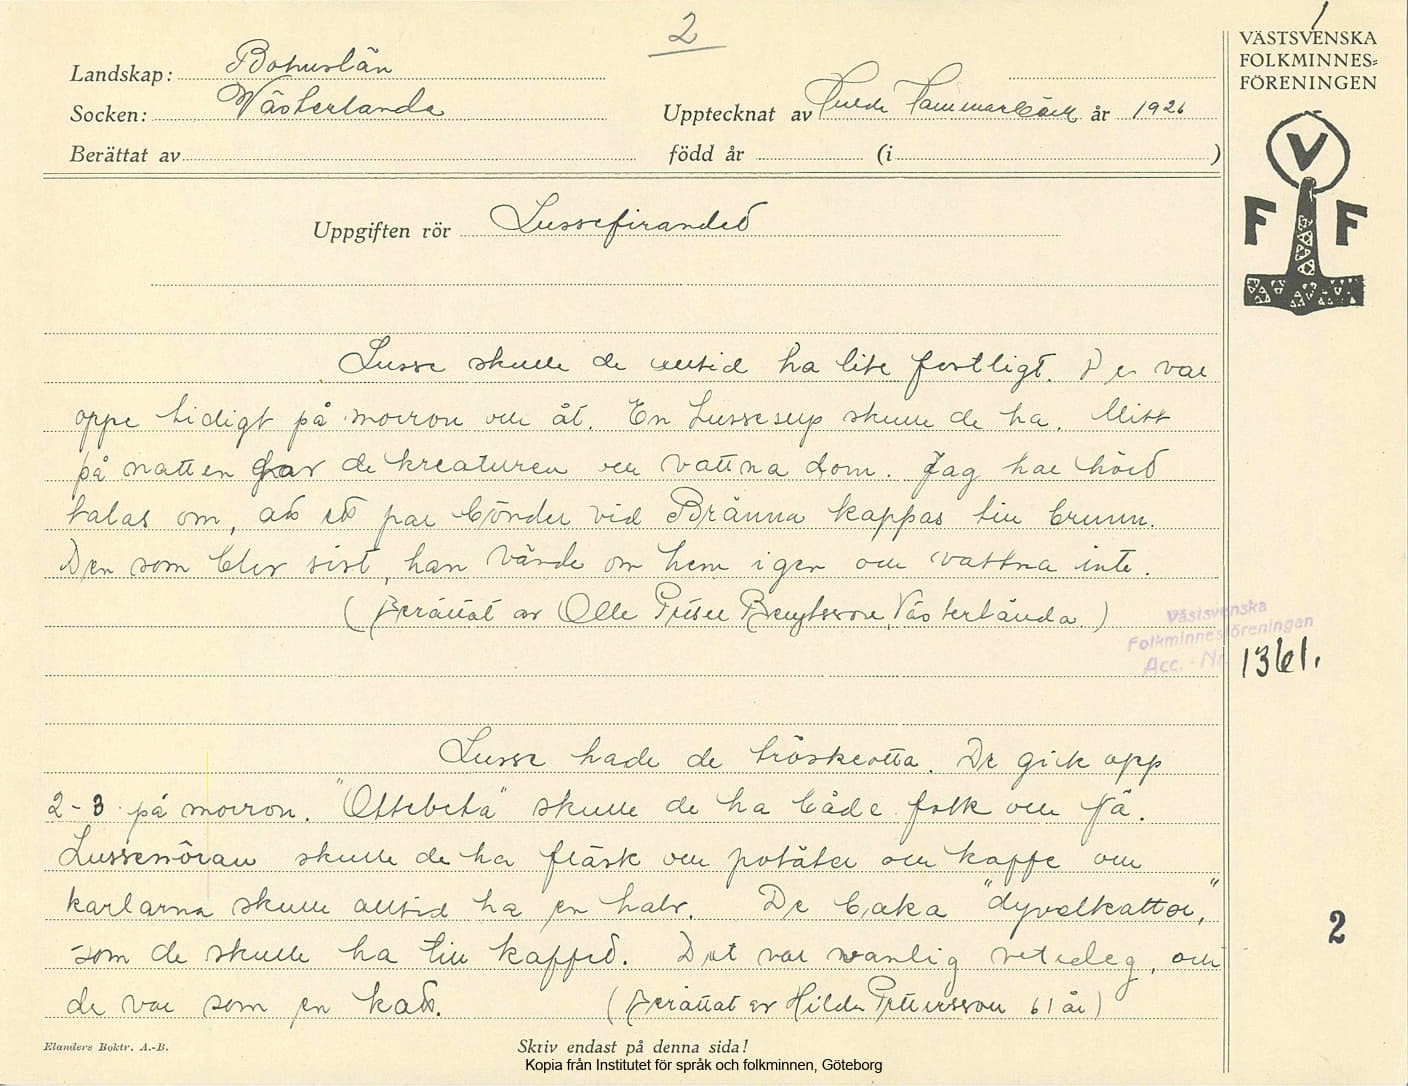 2
1
VÄSTSVENSKA
FOLKMINNES=
FÖRENINGEN
V
F F
Landskap: Bohuslän
Socken: Västerlanda
Upptecknat av Hulda Hammarbäck år 1926
Berättat av
född år (i )
Uppgiften rör Lussefirandet
Lusse skulle de alltid ha lite festligt. De var
oppe tidigt på morron och åt. En Lussesup skulle de ha. Mitt
på natten gav de kreaturen och vattna dom. Jag har hört
talas om, att ett par bönder vid Bränna kappas till brunn.
Den som blev sist, han vände om hem igen och vattna inte.
(Berättat av Olle Petter Bengtsson, Västerlanda.)
Västsvenska
Folkminnesföreningen
Acc. - Nr. 1361.
Lusse hade de tröskeotta. De gick opp
2-3 på morron. "Ottebeta" skulle de ha både folk och fä.
Lussemöran skulle de ha fläsk och potäter och kaffe och
karlarna skulle alltid ha en halv. De baka "dyvelkattor,"
som de skulle ha till kaffet. Det var vanlig vetedeg, och
de var som en katt. (Berättat av Hilda Pettersson 61 år)
2
Elanders Boktr. A.-B.
Skriv endast på denna sida!
Kopia från Institutet för språk och folkminnen, Göteborg